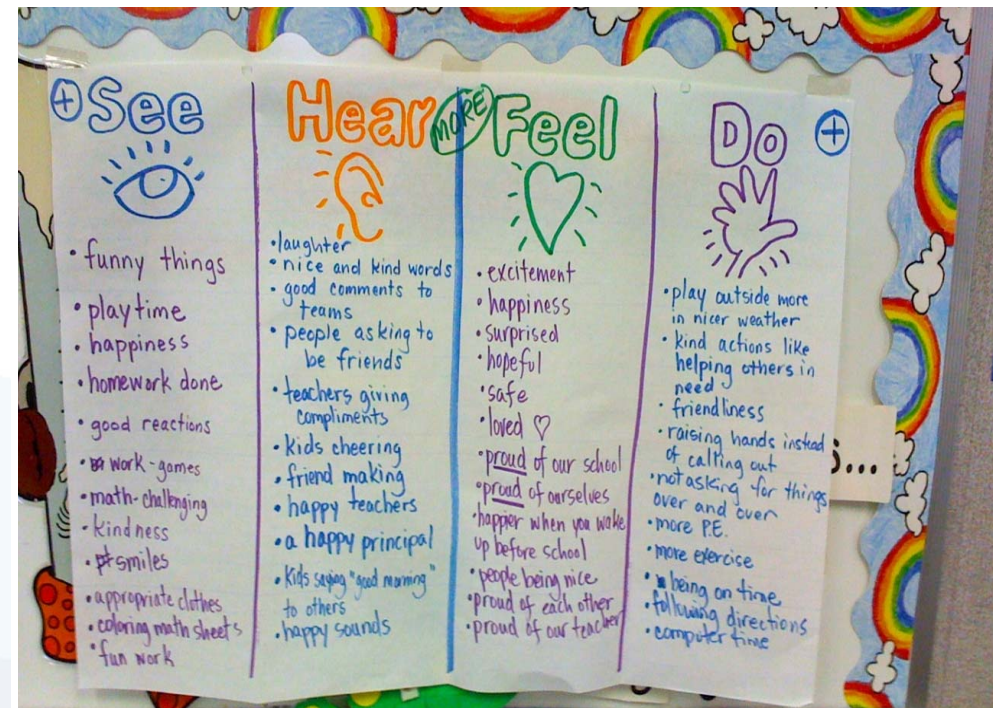 + See
• funny things
• playtime
• happiness
• homework done
• good reactions
• work-games
• math-challenging
• kindness
• smiles
• appropriate clothes
• coloring math sheets
• fun work
Hear
• laughter
• nice and kind words
• good comments to
teams
• people asking to
be friends
• teachers giving
compliments
• kids cheering
• friend making
• happy teachers
• a happy principal
• kids saying "good morning"
to others
• happy sounds
MORE
Feel
• excitement
• happiness
• surprised
• hopeful
• safe
• loved ♡
• proud of our school
• proud of ourselves
• happier when you wake
up before school
• people being nice
• proud of each other
• proud of our teacher
Do +
• play outside more
in nicer weather
• kind actions like
helping others in
need
• friendliness
• raising hands instead
of calling out
• not asking for things
over and over
• more P.E.
• more exercise
• being on time
• following directions
• computer time